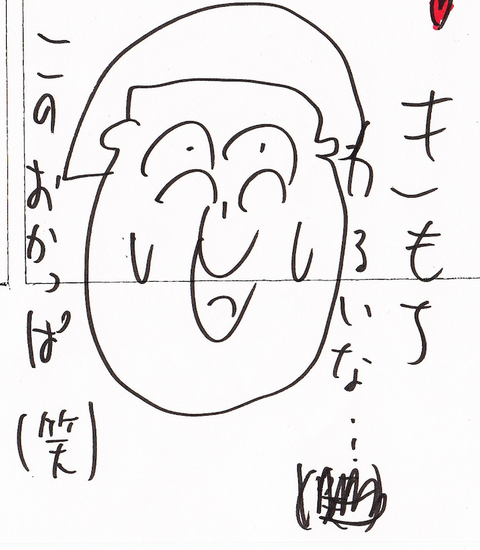 きもち
わるいな…
このおかっぱ
(笑)